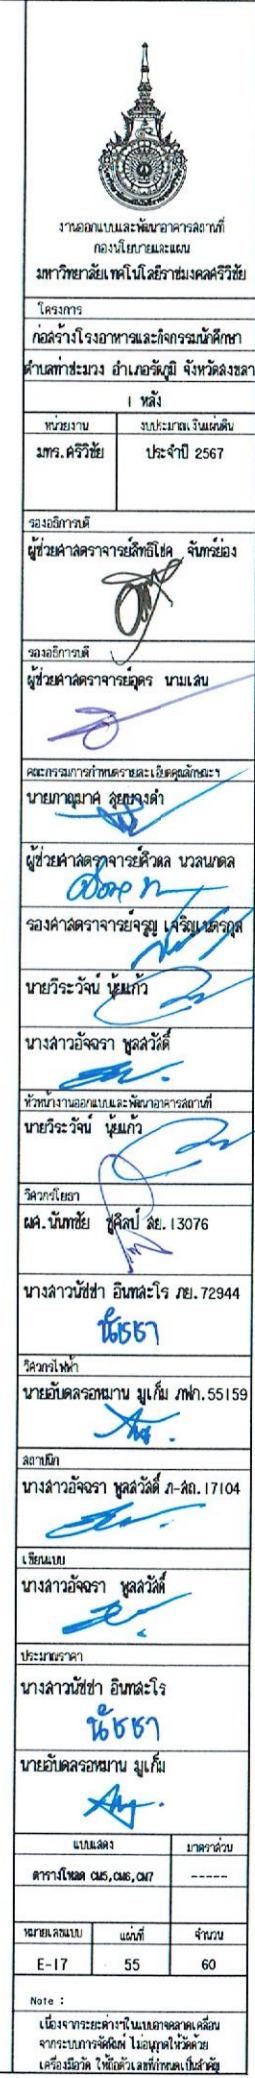 งานออกแบบและพัฒนาอาคารสถานที่
กองนโยบายและแผน
มหาวิทยาลัยเทคโนโลยีราชมงคลศรีวิชัย
โครงการ
ก่อสร้างโรงอาหารและกิจกรรมนักศึกษา
ตำบลท่าชะมวง อำเภอรัตภูมิ จังหวัดสงขลา
1 หลัง
หน่วยงาน งบประมาณเงินแผ่นดิน
มทร.ศรีวิชัย ประจำปี 2567
รองอธิการบดี
ผู้ช่วยศาสตราจารย์สิทธิโชค จันทร์ย่อง
รองอธิการบดี
ผู้ช่วยศาสตราจารย์อุดร นามเสน
คณะกรรมการกำหนดรายละเอียดคุณลักษณะฯ
นายภาณุมาศ
ผู้ช่วยศาสตราจารย์ศิวดล นวลนภดล
รองศาสตราจารย์จรูญ เจริญเนตรกุล
นายวิระวัจน์ นุ้ยแก้ว
นางสาวอัจฉรา พูลสวัสดิ์
หัวหน้างานออกแบบและพัฒนาอาคารสถานที่
นายวิระวัจน์ นุ้ยแก้ว
วิศวกรโยธา
ผศ.นันทชัย ชูศิลป์ สย.13076
นางสาวนัชชา อินทสะโร ภย.72944
นัชชา
วิศวกรไฟฟ้า
นายอับดลรอหมาน มูเก็ม ภฟก.55159
สถาปนิก
นางสาวอัจฉรา พูลสวัสดิ์ ภ-สถ.17104
เขียนแบบ
นางสาวอัจฉรา พูลสวัสดิ์
ประมาณราคา
นางสาวนัชชา อินทสะโร
นัชชา
นายอับดลรอหมาน มูเก็ม
แบบแสดง มาตราส่วน
ตารางโหลด CM5,CM6,CM7 -----
หมายเลขแบบ แผ่นที่ จำนวน
E-17 55 60
Note :
เนื่องจากระยะต่างๆในแบบอาจคลาดเคลื่อน
จากระบบการจัดพิมพ์ ไม่อนุญาตให้วัดด้วย
เครื่องมือวัด ให้ถือตัวเลขที่กำหนดเป็นสำคัญ